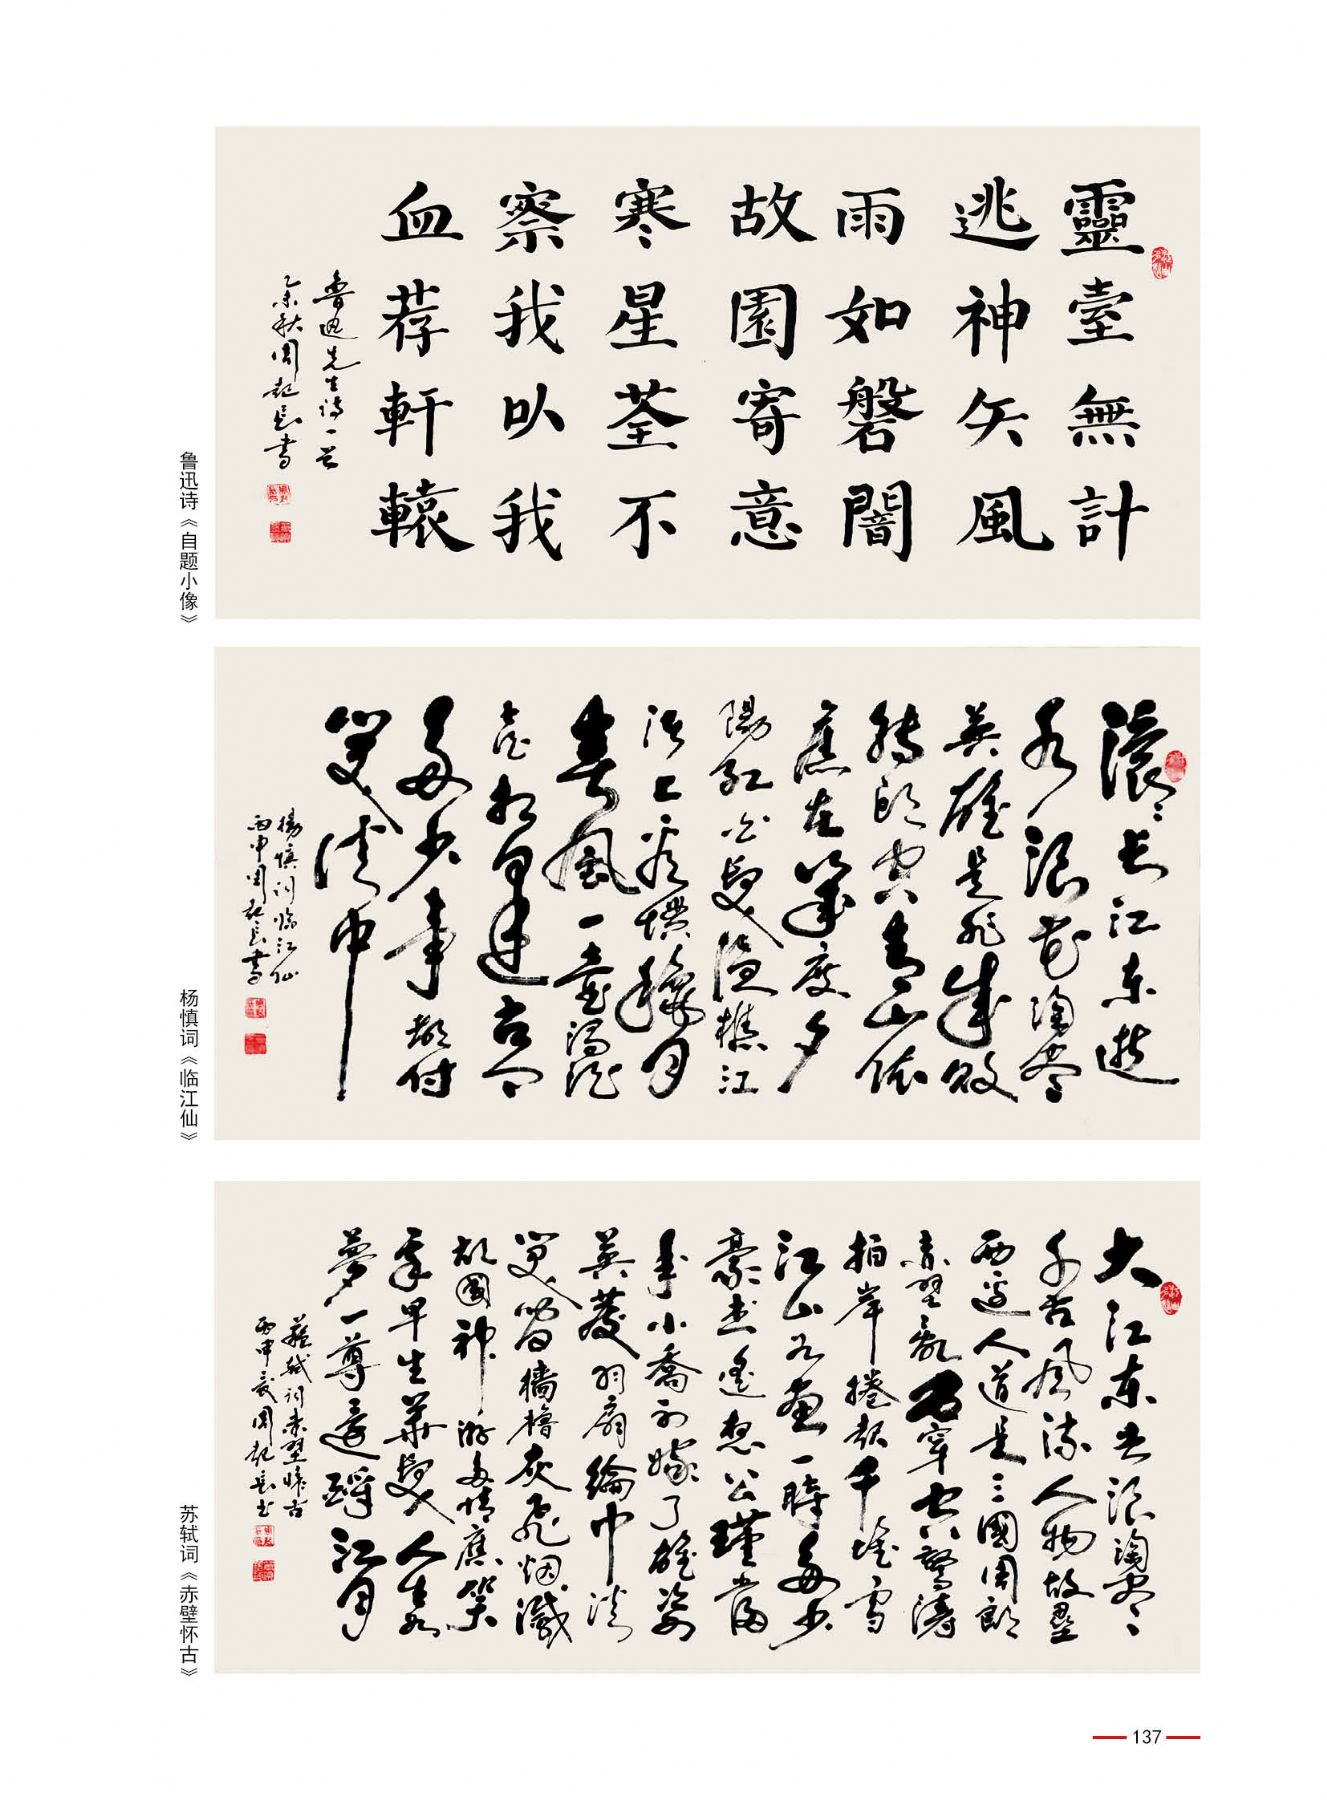 靈臺無計
逃神矢風
雨如磐闇
故園寄意
寒星荃不
察我以我
血荐軒轅
鲁迅先生诗一首
乙未秋周起长書
鲁迅诗《自题小像》
滚々长江东逝
水浪花淘尽
英雄是非成敗
转头空青山依
舊在幾度夕
陽红白髮渔樵江
渚上看惯秋月
春風一壺濁酒
喜相逢古今
多少事都付
笑谈中
楊慎词临江仙
丙申周起长書
杨慎词《临江仙》
大江東去浪淘尽
千古風流人物故壘
西邊人道是三國周郎
赤壁亂石穿空驚涛
拍岸捲起千堆雪
江山如画一時多少
豪杰遙想公瑾當
年小喬初嫁了雄姿
英發羽扇綸巾谈
笑间檣櫓灰飛烟滅
故國神游多情應笑
我早生華髮人生如
夢一尊還酹江月
蘇轼词赤壁怀古
丙申夏周起长书
苏轼词《赤壁怀古》
137